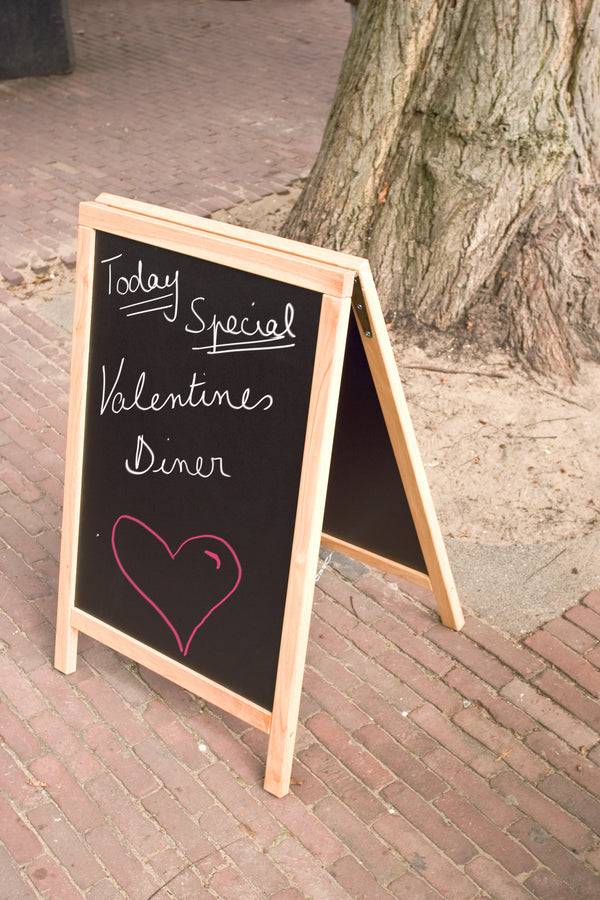 Today
Special
Valentines
Diner